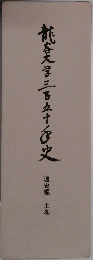 龍谷大学三百五十年史
通史編 上巻